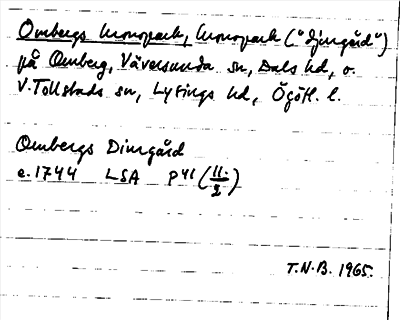 Ombergs kronopark, kronopark ("djurgård")
på Omberg, Väversunda sn, Dals hd, o.
V. Tollstads sn, Lysings hd, Ögötl. l.
Ombergs Diurgård
c. 1744 LSA P41 (11:/2)
T.N.B. 1965.